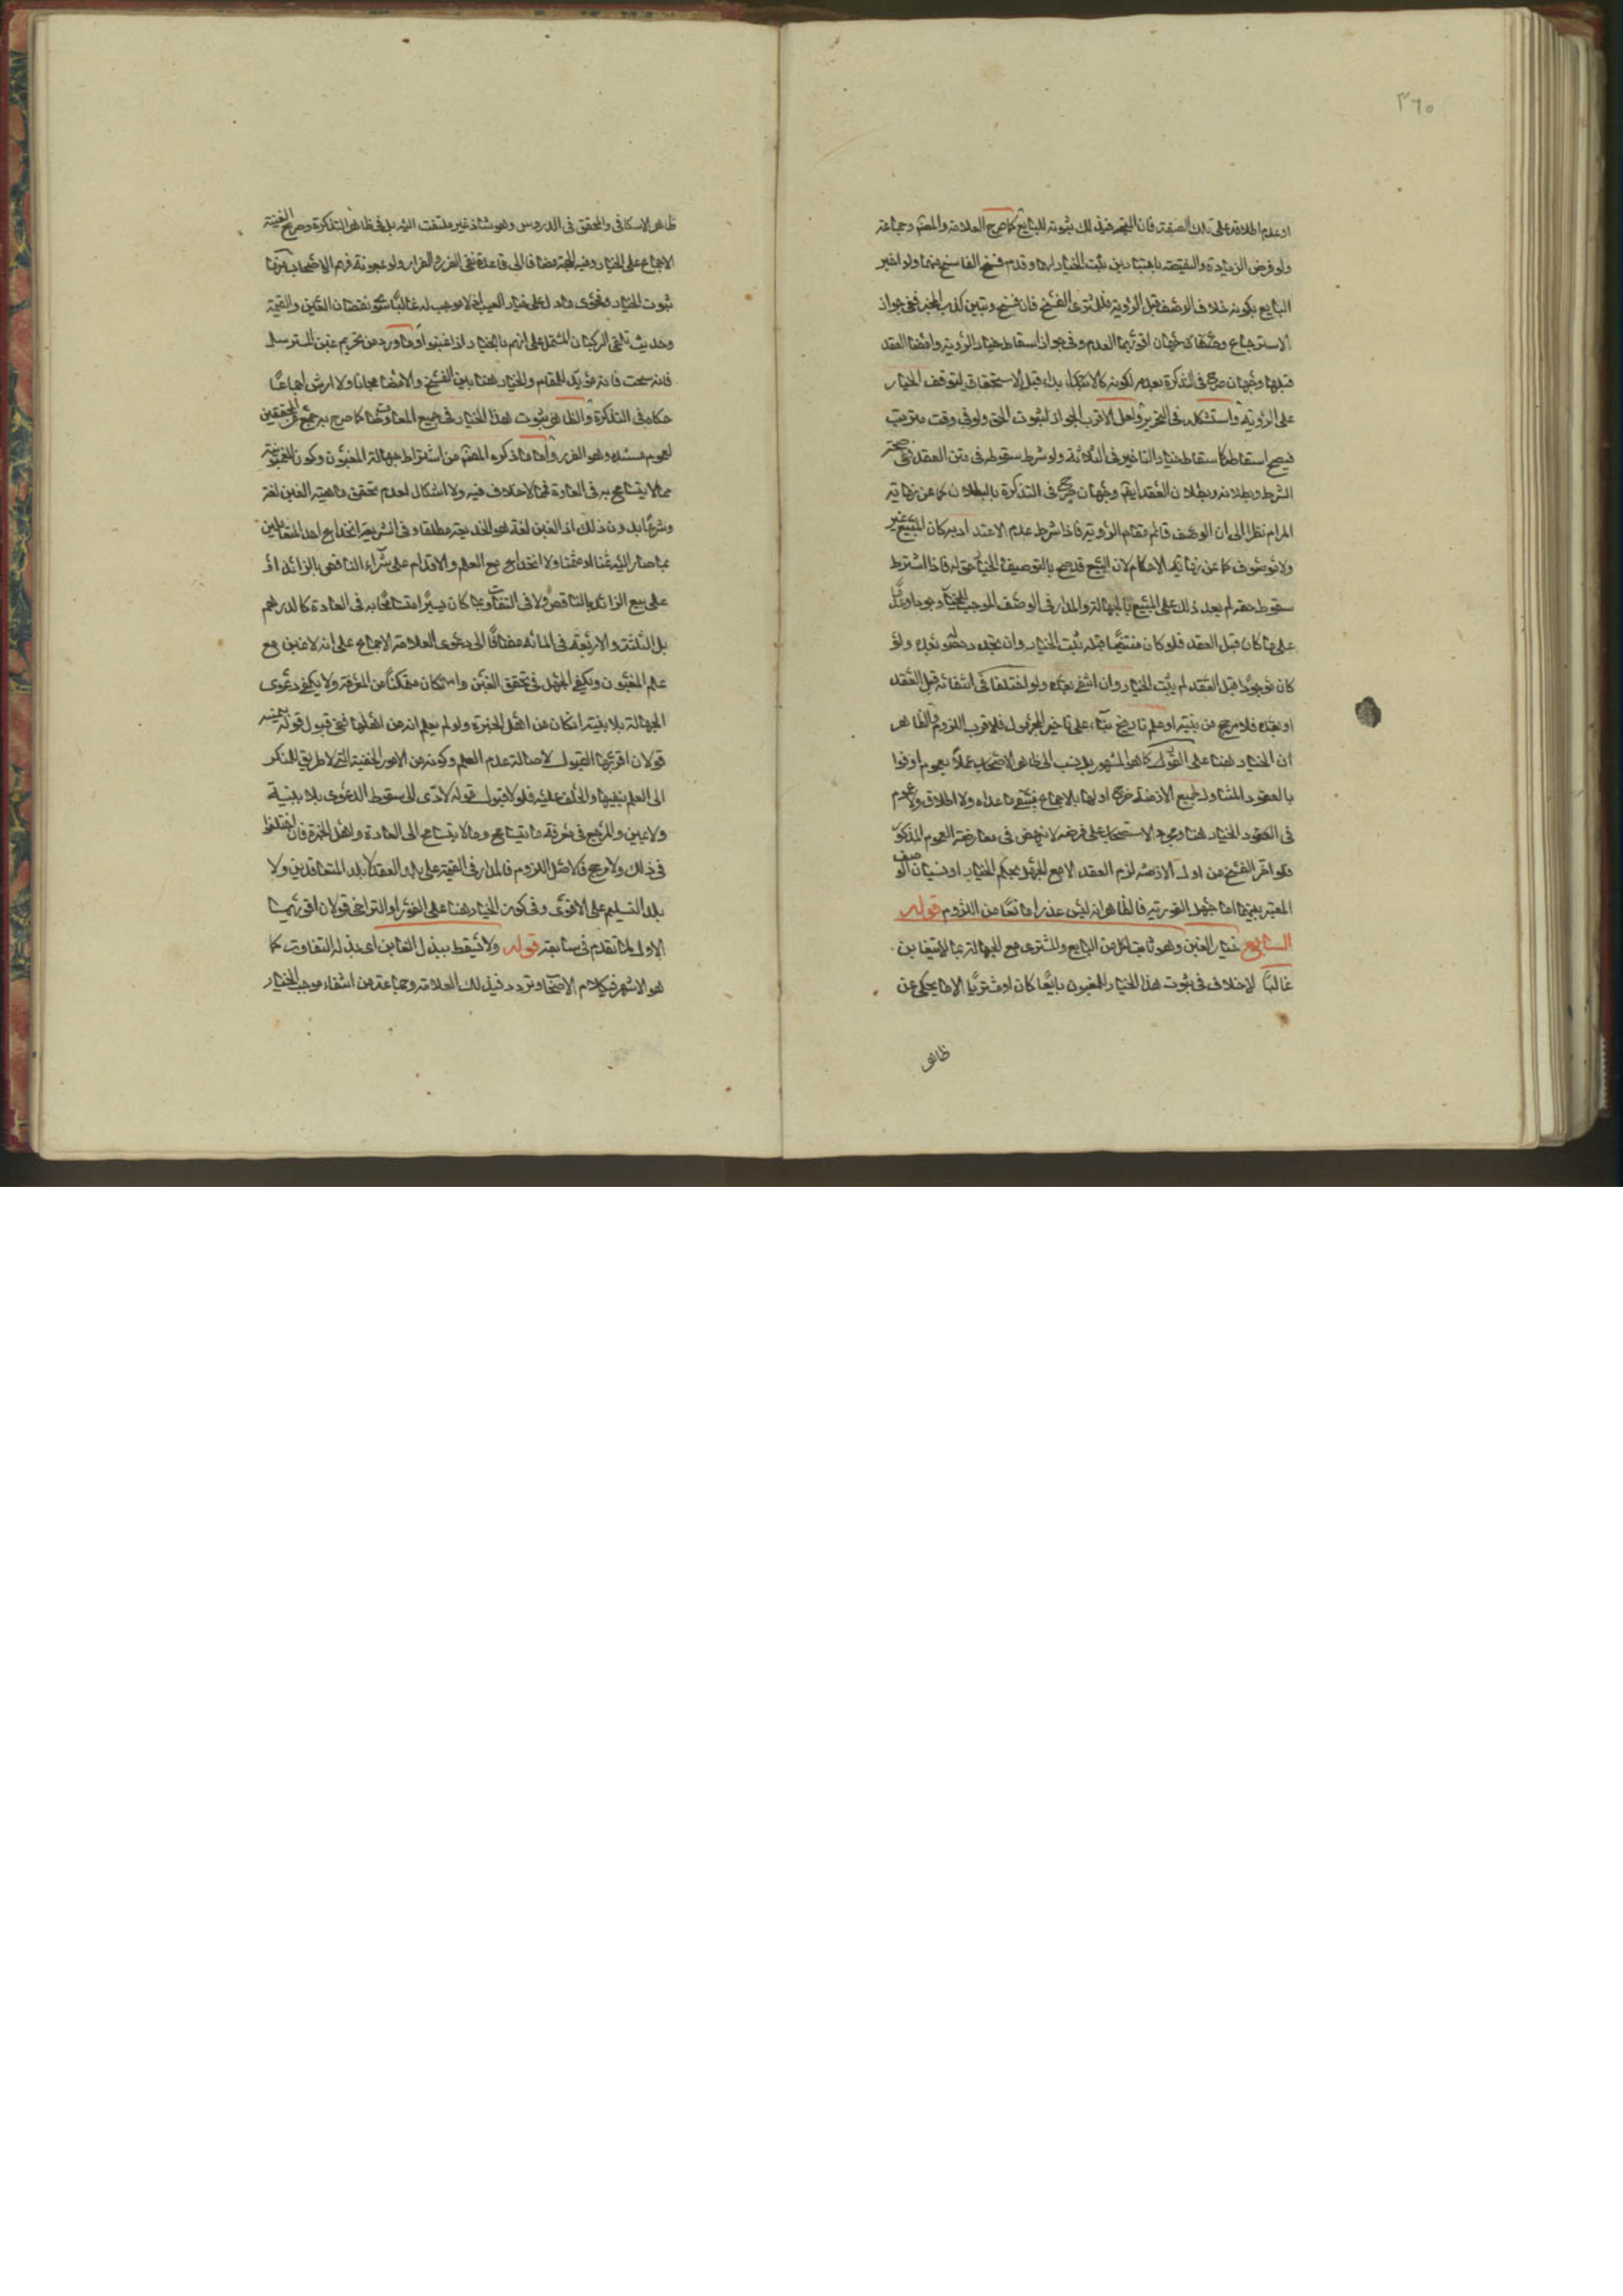 ٣٦٠
او عدم اطلاقه على تلك الصفة فان المتجه فى ذلك ثبوته للبايع كما صرح العلامة والمصنف وجماعة
ولو فرض الزيادة والنقيصة باعتبارين ثبت الخيار لهما وقدم فسخ الفاسخ منهما ولو اخبر
البايع بكونه خلاف الوصف قبل الرؤية فللمشترى الفسخ فان فسخ وتبين كذب المخبر ففى جواز
الاسترجاع وجهان اقربهما العدم وفى جواز اسقاط خيار الرؤية وامضاء العقد
قبلها وجهان صرح فى التذكرة بعدمه لكونه كالابتداء قبل الاستحقاق لتوقف الخيار
على الرؤية واستشكله فى التحرير ولعل الاقرب الجواز لثبوت الحق ولو فى وقت مترتب
فيصح اسقاطه كاسقاط خيار التاخير فى الثلاثة ولو شرط سقوطه فى متن العقد ففى صحة
الشرط وبطلانه وبطلان العقد وجهان صرح فى التذكرة بالبطلان كما عن نهاية
المرام نظرا الى ان الوصف قائم مقام الرؤية فاذا شرط عدم الاعتداد به كان المبيع غير مرئى
ولا موصوف كما عن نهاية الاحكام لان البيع قد صح بالتوصيف والخيار حق له فاذا اشترط
سقوط حقه لم يعد ذلك على المبيع بالجهالة والمدار فى الوصف الموجب للخيار وجودا وعدما
على ما كان قبل العقد فلو كان منتفيا قبله ثبت الخيار وان تجدد حصوله بعده ولو
كان موجودا قبل العقد لم يثبت الخيار وان انتفى بعده ولو اختلفا فى انتفائه قبل العقد
او بعده فلا مرجح من بينة او علم تاريخ بناء على تاخير المجهول فالاقرب اللزوم والظاهر
ان الخيار هنا على الفور كما هو المشهور بل ينسب الى ظاهر الاصحاب عملا بعموم اوفوا
بالعقود المتناول لجميع الازمنة خرج اولها بالاجماع فيبقى ما عداه ولا اطلاق ولا عموم
فى العقود الخيار هنا وبوجه الاستصحاب على فرضه لا ينهض فى معارضة العموم المذكور
فلو اخر الفسخ من اول الازمنة لزم العقد الا مع الجهل بحكم الخيار او نسيان الوصف
المعتبر بينهما اما جهل الفورية فالظاهر انه ليس عذرا مانعا من اللزوم قوله
السابع خيار الغبن وهو ثابت لكل من البايع والمشترى مع الجهالة بما لا يتغابن
غالبا لا خلاف فى ثبوت هذا الخيار للمغبون بايعا كان او مشتريا الا ما يحكى عن
ظاهر
ظاهر الاسكافى والمحقق فى الدروس وهو شاذ غير ملتفت اليه بل فى ظاهر التذكرة وصريح الغنية
الاجماع على الخيار وفيه الحجة مضافا الى قاعدة نفى الضرر والضرار ولو بمعونة فهم الاصحاب
ثبوت الخيار وفحوى ما دل على خيار العيب اذ لا موجب له غالبا سوى نقصان العين والقيمة
وحديث تلقى الركبان المشتمل على انهم بالخيار اذا غبنوا وما ورد من تحريم غبن المسترسل
فانه سحت فانه مؤيد للمقام والخيار هنا بين الفسخ والامضاء مجانا ولا ارش اجماعا
حكاه فى التذكرة والظاهر ثبوت هذا الخيار فى جميع المعاوضات كما صرح به جمع من المحققين
لعموم مستنده وهو الضرر واما ما ذكره المصنف من اشتراط جهالة المغبون وكون الغبن
مما لا يتسامح به فى العادة فمما لا خلاف فيه ولا اشكال لعدم تحقق ماهية الغبن لغة
وشرعا بدون ذلك اذ الغبن لغة هو الخديعة مطلقا وفى الشريعة انخداع احد المتعاملين
بما صار اليه ثمنا او مثمنا ولا انخداع مع العلم والاقدام على شراء الناقص بالزائد او
على بيع الزائد بالناقص ولا فى التفاوت بما كان يسيرا متسامحا به فى العادة كالدرهم
بل الثلثة والاربعة فى المائة مضافا الى دعوى العلامة الاجماع على انه لا غبن مع
علم المغبون ويكفى الجهل فى تحقق الغبن وان كان متمكنا من المعرفة ولا يكفى دعوى
الجهالة بلا بينة ان كان من اهل الخبرة ولو لم يعلم انه من اهلها ففى قبول قوله بيمينه
قولان اقربهما القبول لاصالة عدم العلم وكونه من الامور الخفية التى لا طريق للمنكر
الى العلم بنفيها والحلف عليه فلو لا قبول قوله لادى الى سقوط الدعوى بلا بينة
ولا يمين والمرجع فى معرفة ما يتسامح وما لا يتسامح الى العادة واهل الخبرة فان اختلفوا
فى ذلك ولا مرجح فالاصل اللزوم فالمدار فى القيمة على بلد العقد لا بلد المتعاقدين ولا
بلد التسليم على الاقوى وفى كون الخيار هنا على الفور او التراخى قولان اقربهما
الاول لما تقدم فى سابقه قوله ولا يسقط ببذل الغابن اى بذله التفاوت كما
هو الاشهر فى كلام الاصحاب وتردد فى ذلك العلامة وجماعة من انتفاء موجب الخيار